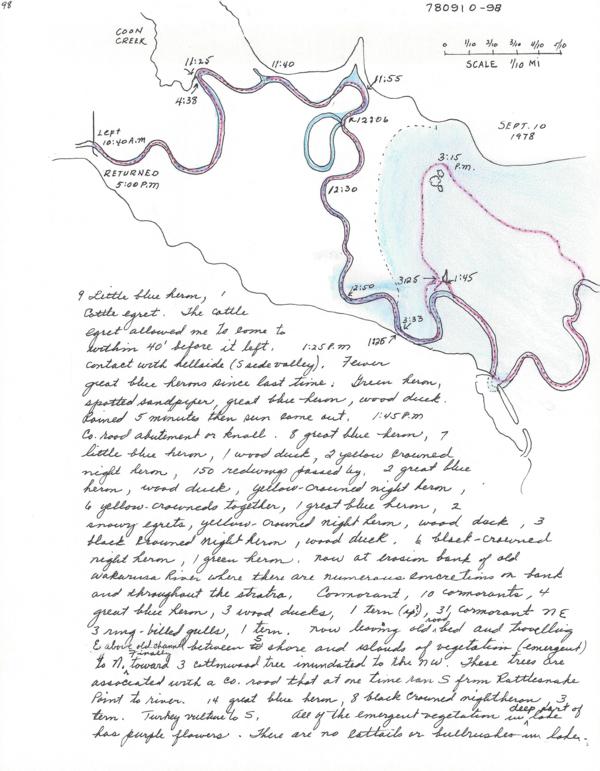 98
780910-98
COON
CREEK
0 1/10 2/10 3/10 4/10 5/10
SCALE 1/10 MI
11:25
11:40
11:55
4:38
12:06
SEPT. 10
1978
Left
10:40 A.M
RETURNED
5:00 P.M
3:15
P.M.
12:30
12:50
3:25
1:45
3:33
1:25
9 Little blue heron, 1
Cattle egret. The cattle
egret allowed me to come to
within 40' before it left. 1:25 P.M
contact with hillside (S side valley). Fewer
great blue herons since last time. Green heron,
spotted sandpiper, great blue heron, wood duck.
Rained 5 minutes then sun came out. 1:45 P.M
Co. road abutement or knoll. 8 great blue heron, 7
little blue heron, 1 wood duck, 2 yellow crowned
night heron, 150 redwings passed by. 2 great blue
heron, wood duck, yellow-crowned night heron,
6 yellow-crowneds together, 1 great blue heron, 2
snowy egrets, yellow-crowned night heron, wood duck, 3
black crowned night heron, wood duck. 6 black-crowned
night heron, 1 green heron. Now at erosion bank of old
Wakarusa River where there are numerous concretions on bank
and throughout the stratra. Cormorant, 10 cormorants, 4
great blue heron, 3 wood ducks, 1 tern (sp?), 31 cormorant NE
3 ring-billed gulls, 1 tern. Now leaving old road bed and travelling
E above old channel between S shore and islands of vegetation (emergent)
to N. finally toward 3 cottonwood tree inundated to the NW. These trees are
associated with a Co. road that at one time ran S from Rattlesnake
Point to river. 14 great blue heron, 8 black crowned nightheron, 3
tern. Turkey vulture to S. All of the emergent vegetation in deep part of lake
has purple flowers. There are no cattails or bullrushes in lake.